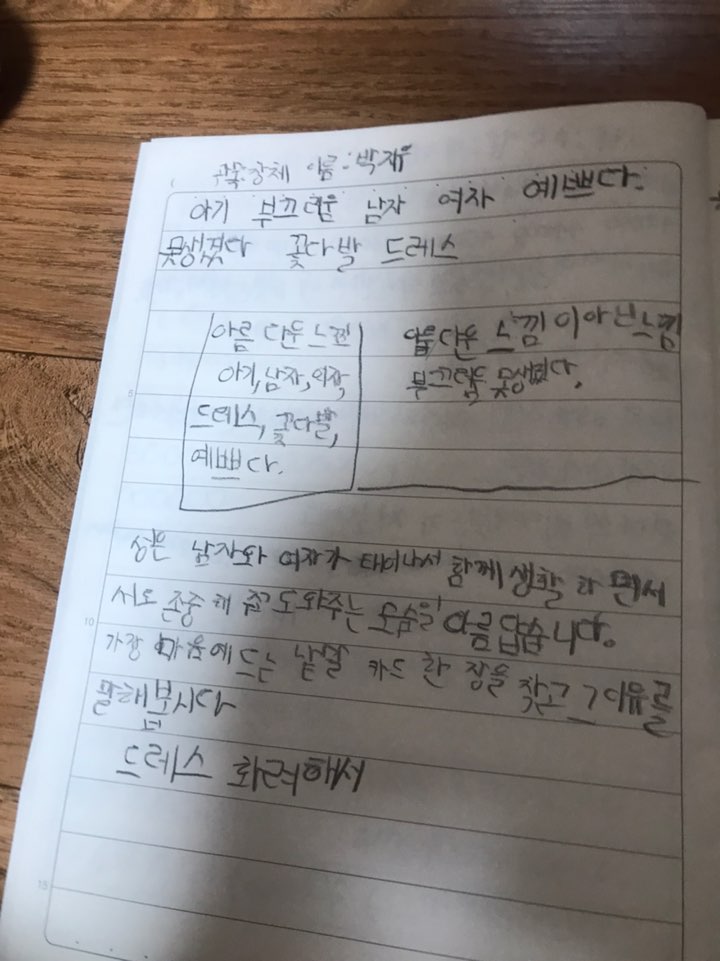 이름: 박재우
아기 부끄러운 남자 여자 예쁘다.
못생겼다 꽃다발 드레스
아름다운 느낀
아기, 남자, 여자,
드레스, 꽃다발,
예쁘다.
아름다운 느낌이 아닌 느낌
부끄럽도 못생겼다.
5
성은 남자와 여자가 태어나서 함께 생활 하면서
서로 존중해 주고 도와주는 모습을 아름답습니다.
10
가장 마음에 드는 낱말 카드 한 장을 찾고 그 이유를
말해봅시다
드레스 화려해서
15